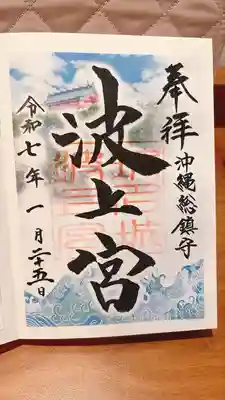 奉拝 沖縄総鎮守
波上宮
令和七年一月二十五日